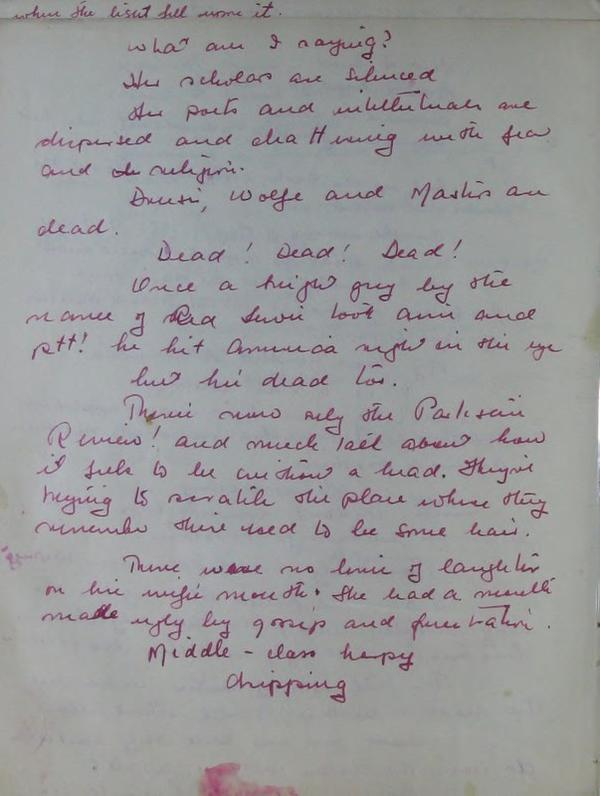 when the light fell upon it.
What am I saying?
Her scholars are silenced
Her poets and intellectuals are
dispersed and chattering with fear
and religion.
Dreiser, Wolfe and Masters are
dead.
Dead! Dead! Dead!
Once a bright guy by the
name of Red Lewis took aim and
ptt! he hit America right in the eye
but he's dead too.
There's now only the Partisan
Review! and much talk about how
it feels to be without a head. They're
trying to scratch the place where they
remember there used to be some hair.
There were no lines of laughter
on his wife's mouth. She had a mouth
made ugly by gossip and frustration.
Middle-class harpy